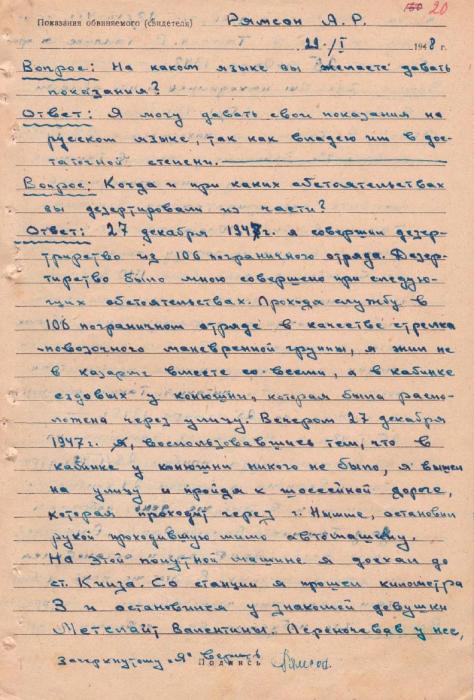 150 20
Показания обвиняемого (свидетеля) Рямсон А. Р.
21/I 1948 г.
Вопрос: На каком языке вы желаете давать
показания?
Ответ: Я могу давать свои показания на
русском языке, так как владею им в дос-
таточной степени.
Вопрос: Когда и при каких обстоятельствах
вы дезертировали из части?
Ответ: 27 декабря 1947 г. я совершил дезер-
тирство из 106 пограничного отряда. Дезер-
тирство было мною совершено при следую-
щих обстоятельствах. Проходя службу в
106 пограничном отряде в качестве стрелка
-повозочного маневренной группы, я жил не
в казарме вместе со всеми, а в кабинке
ездовых у конюшни, которая была распо-
ложена через улицу. Вечером 27 декабря
1947 г. я, воспользовавшись тем, что в
кабинке у конюшни никого не было, я вышел
на улицу и пройдя к шоссейной дороге,
которая проходит через г. Нымме, остановил
рукой проходившую мимо автомашину.
На этой попутной машине я доехал до
ст. Кийза. Со станции я прошел километра
3 и остановился у знакомой девушки
Метслайт Валентины. Переночевав у нее,
зачеркнутому "Я" верить
Подпись Рямсон